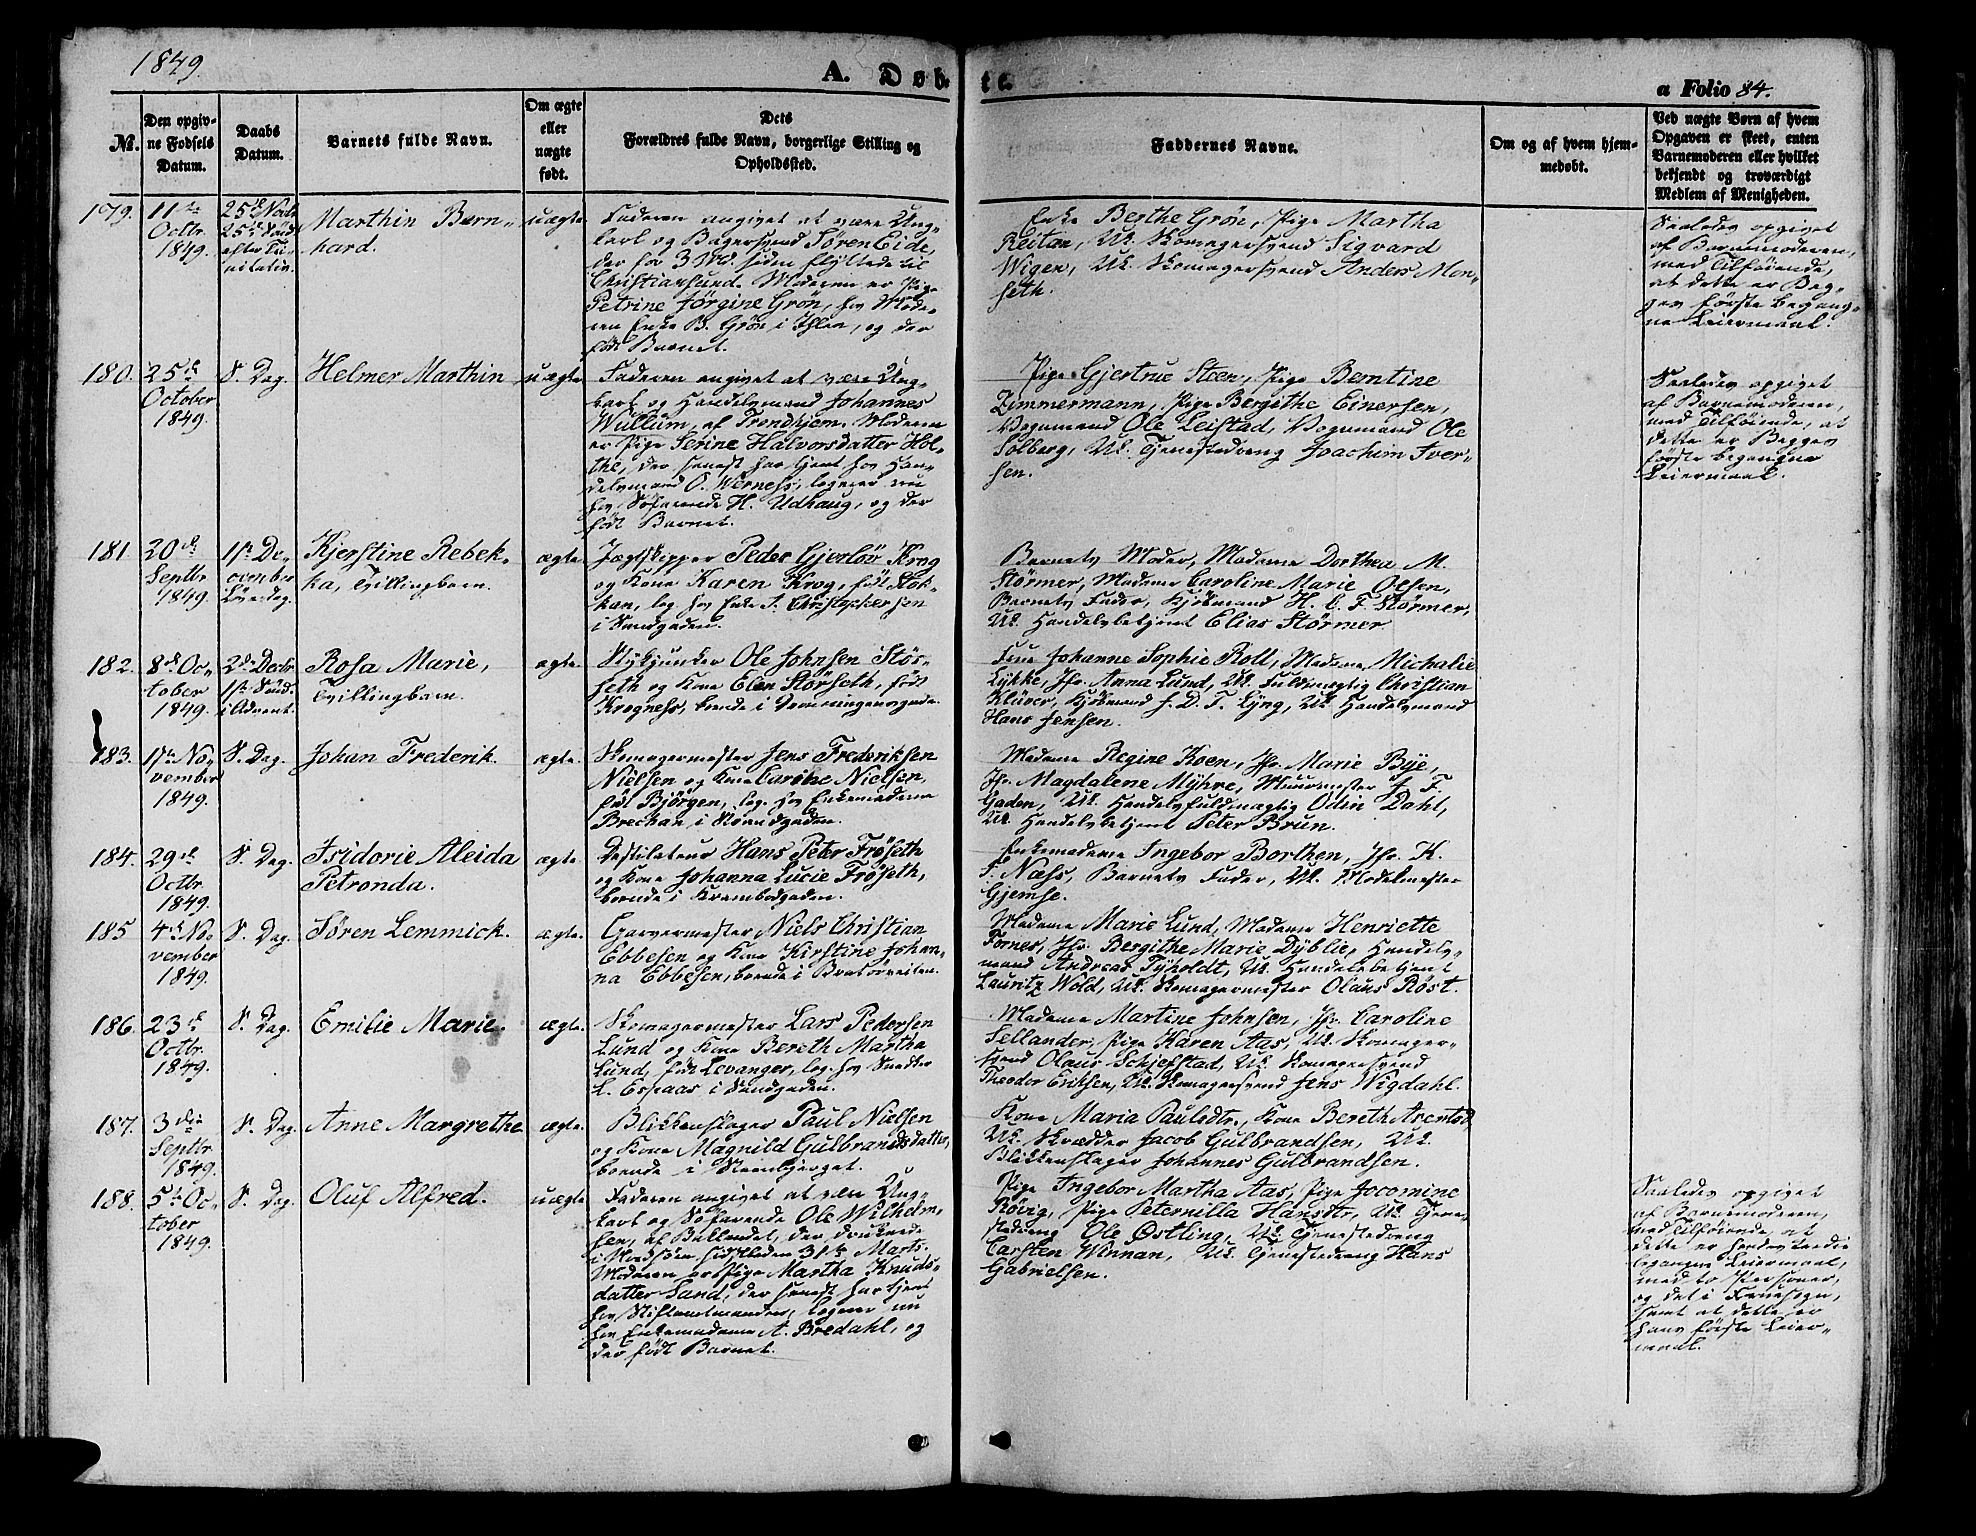 1849.
A. Døb-
te.
a Folio 84.
No.
Den opgiv-
ne Fødsels
Datum.
Daabs
Datum.
Barnets fulde Navn.
Om ægte
eller
uægte
født.
Dets
Forældres fulde Navn, borgerlige Stilling og
Opholdssted.
Faddernes Navne.
Om og af hvem hjem-
medøbt.
Ved uægte Børn af hvem
Opgaven er skeet, enten
Barnemoderen eller hvilket
bekjendt og troværdigt
Medlem af Menigheden.
179.
11te
Octbr.
1849.
25de Novbr
25de Sønd.
efter Tri-
nitatis.
Marthin Bern-
hard.
uægte
Faderen angivet at være Ung-
karl og Bagersvend Søren Eide,
der for 3 Md. siden flyttede til
Christiansund. Moderen er Pige
Petrine Jørgine Grön, hos Mode-
ren Enke B. Grön i Ihlen, og der
født Barnet.
Enke Berthe Grön, Pige Martha
Reitan, Uk. Skomagersvend Sigvard
Wigen, Uk. Skomagersvend Anders Mon-
seth.
Saaledes opgivet
af Barnemoderen,
med Tilføiende,
at dette er Beg-
ges første begang-
ne Leiermaal.
180.
25de
October
1849.
S. Dag.
Helmer Marthin
uægte
Faderen angivet at være Ung-
karl og Handelsmand Johannes
Wullum, af Trondhjem. Moderen
er Pige Serine Halvorsdatter Hol-
the, der senest har tjent hos Han-
delsmand O. Werness, logerer nu
hos Søfarende H. Udhaug, og der
født Barnet.
Pige Gjertrue Steen, Pige Berntine
Zimmermann, Pige Bergithe Einersen,
Vognmand Ole Leistad, Vognmand Ole
Solberg, Uk. Tjenestedreng Joachim Iver-
sen.
Saaledes opgivet
af Barnemoderen,
med Tilføiende, at
dette er Begges
første begangne
Leiermaal.
181.
20de
Septbr
1849.
1ste De-
cember
Løverdag.
Kjerstine Rebek-
ka, Tvillingbarn.
ægte.
Jægtskipper Peder Gjerløv Krog
og Kone Karen Krog, født Stok-
kan, log. hos Enke S. Christophersen
i Sandgaden.
Barnets Moder, Madame Dorthea M.
Störmer, Madame Caroline Marie Olsen,
Barnets Fader, Kjøbmand H. C. F. Störmer,
Uk. Handelsbetjent Elias Störmer.
182.
8de Oc-
tober
1849.
2de Decbr.
1ste Sönd.
i Advent.
Rosa Marie,
Tvillingbarn.
ægte.
Stykjunker Ole Johnsen Stör-
seth og Kone Elen Störseth, født
Krogness, boende i Dronningensgade.
Frue Johanne Sophie Roll, Madame Michalie
Lykke, Jfr. Anna Lund, Uk. Fuldmægtig Christian
Klüver, Kjøbmand J. D. F. Lyng, Uk. Handelsmand
Hans Jensen.
183.
1ste No-
vember
1849.
S. Dag.
Johan Frederik.
ægte.
Skomagermester Jens Frederiksen
Nielsen og Kone Carohe Nielsen,
født Björgen, log. hos Enkemadame
Brechan i Strandgaden.
Madame Regine Koen, Jfr. Marie Bye,
Jfr. Magdalene Myhre, Muurmester J. F.
Gaden, Uk. Handelsfuldmægtig Odin Dahl,
Uk. Handelsbetjent Peter Brun.
184.
29de
Octbr.
1849.
S. Dag.
Isidorie Aleida
Petronda.
ægte.
Destilateur Hans Peter Fröseth
og Kone Johanna Lucie Fröseth,
boende i Krambodgaden.
Enkemadame Ingebor Borthen, Jfr. K.
F. Næss, Barnets Fader, Uk. Modelmester
Gjemse.
185
4de No-
vember
1849.
S. Dag.
Sören Lemmick.
ægte.
Garvermester Niels Christian
Ebbesen og Kone Kirstine Johan-
na Ebbesen, boende i Bratørveiten.
Madame Marie Lund, Madame Henriette
Fornes, Jfr. Bergithe Marie Dyblie, Handels-
mand Andreas Tyholdt, Uk. Handelsbetjent
Lauritz Wold, Uk. Skomagermester Olaus Röst.
186.
23de
Octbr.
1849.
S. Dag.
Emilie Marie.
ægte.
Skomagermester Lars Pedersen
Lund og Kone Bereth Martha
Lund, født Levanger, log. hos Snedker
L. Espaas i Sandgaden.
Madame Martine Johnsen, Jfr. Caroline
Sellander, Pige Karen Aas, Uk. Skomager-
svend Olaus Schjefstad, Uk. Skomagersvend
Theodor Eriksen, Uk. Skomagersvend Jens Wigdahl.
187.
3die
Septbr
1849.
S. Dag.
Anne Margrethe
ægte.
Blikkenslager Paul Nielsen
og Kone Magnild Gulbrandsdatter,
boende i Steenbjerget.
Kone Maria Paulsdtr, Kone Bereth Arentsd.
Uk. Skrædder Jacob Gulbrandsen, Uk.
Blikkenslager Johannes Gulbrandsen.
188.
5te Oc-
tober
1849.
S. Dag.
Oluf Alfred.
uægte
Faderen angivet at være Ung-
karl og Søfarende Ole Wilhelm-
sen, af Baklandet, der druknede
i Nordsøen sidstleden 31te Marts.
Moderen er Pige Martha Knuds-
datter Sand, der senest har tjent
hos Stiftamtmanden, logerer nu
hos Enkemadame A. Bredahl, og
der født Barnet.
Pige Ingebor Martha Aas, Pige Jocomine
Rövig, Pige Peternilla Hansdtr, Uk. Tjene-
stedreng Ole Östling, Uk. Tjenestedreng
Carsten Winnan, Uk. Tjenestedreng Hans
Gabrielsen.
Saaledes opgivet
af Barnemoderen,
med Tilføiende at
dette er hendes tredie
begangne Leiermaal,
med to Personer,
og det i Frue Sogn,
samt at dette er
hans første Leier-
maal.